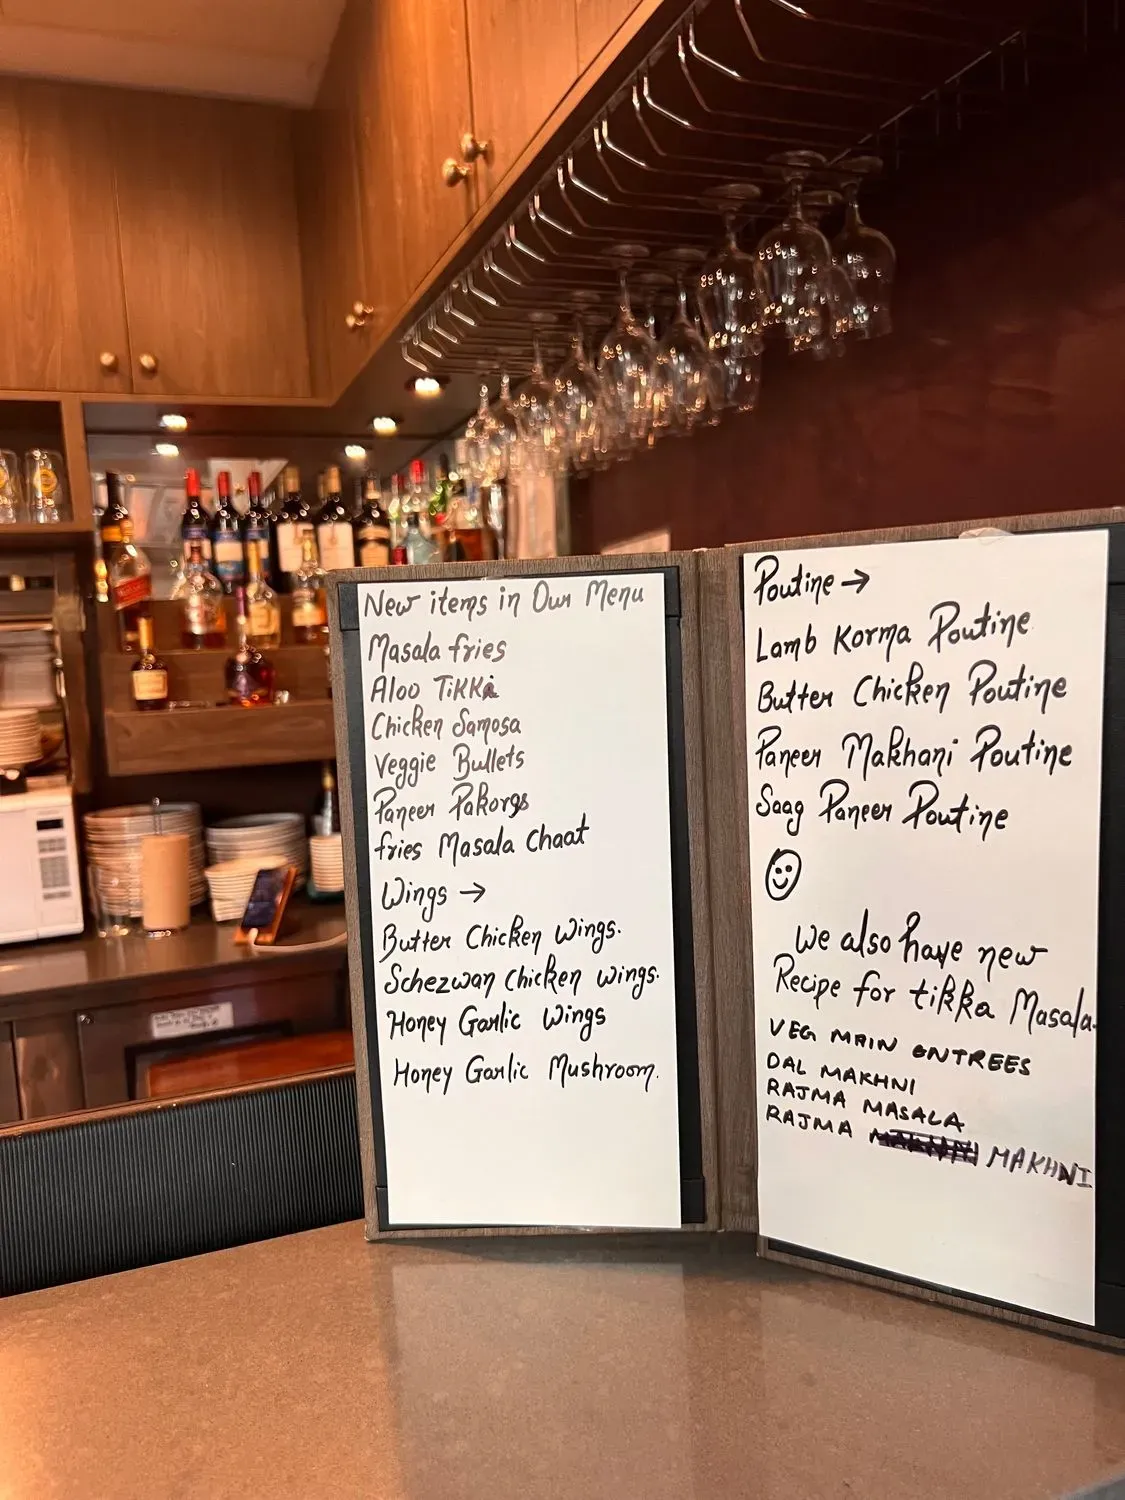 New items in Our Menu
Masala fries
Aloo Tikki
Chicken Samosa
Veggie Bullets
Paneer Pakorgs
fries Masala Chaat
Wings →
Butter Chicken Wings.
Schezwan Chicken wings.
Honey Garlic Wings
Honey Garlic Mushroom.
Poutine →
Lamb Korma Poutine
Butter Chicken Poutine
Paneer Makhani Poutine
Saag Paneer Poutine
We also have new
Recipe for tikka Masala.
VEG MAIN ENTREES
DAL MAKHNI
RAJMA MASALA
RAJMA MAKHNI